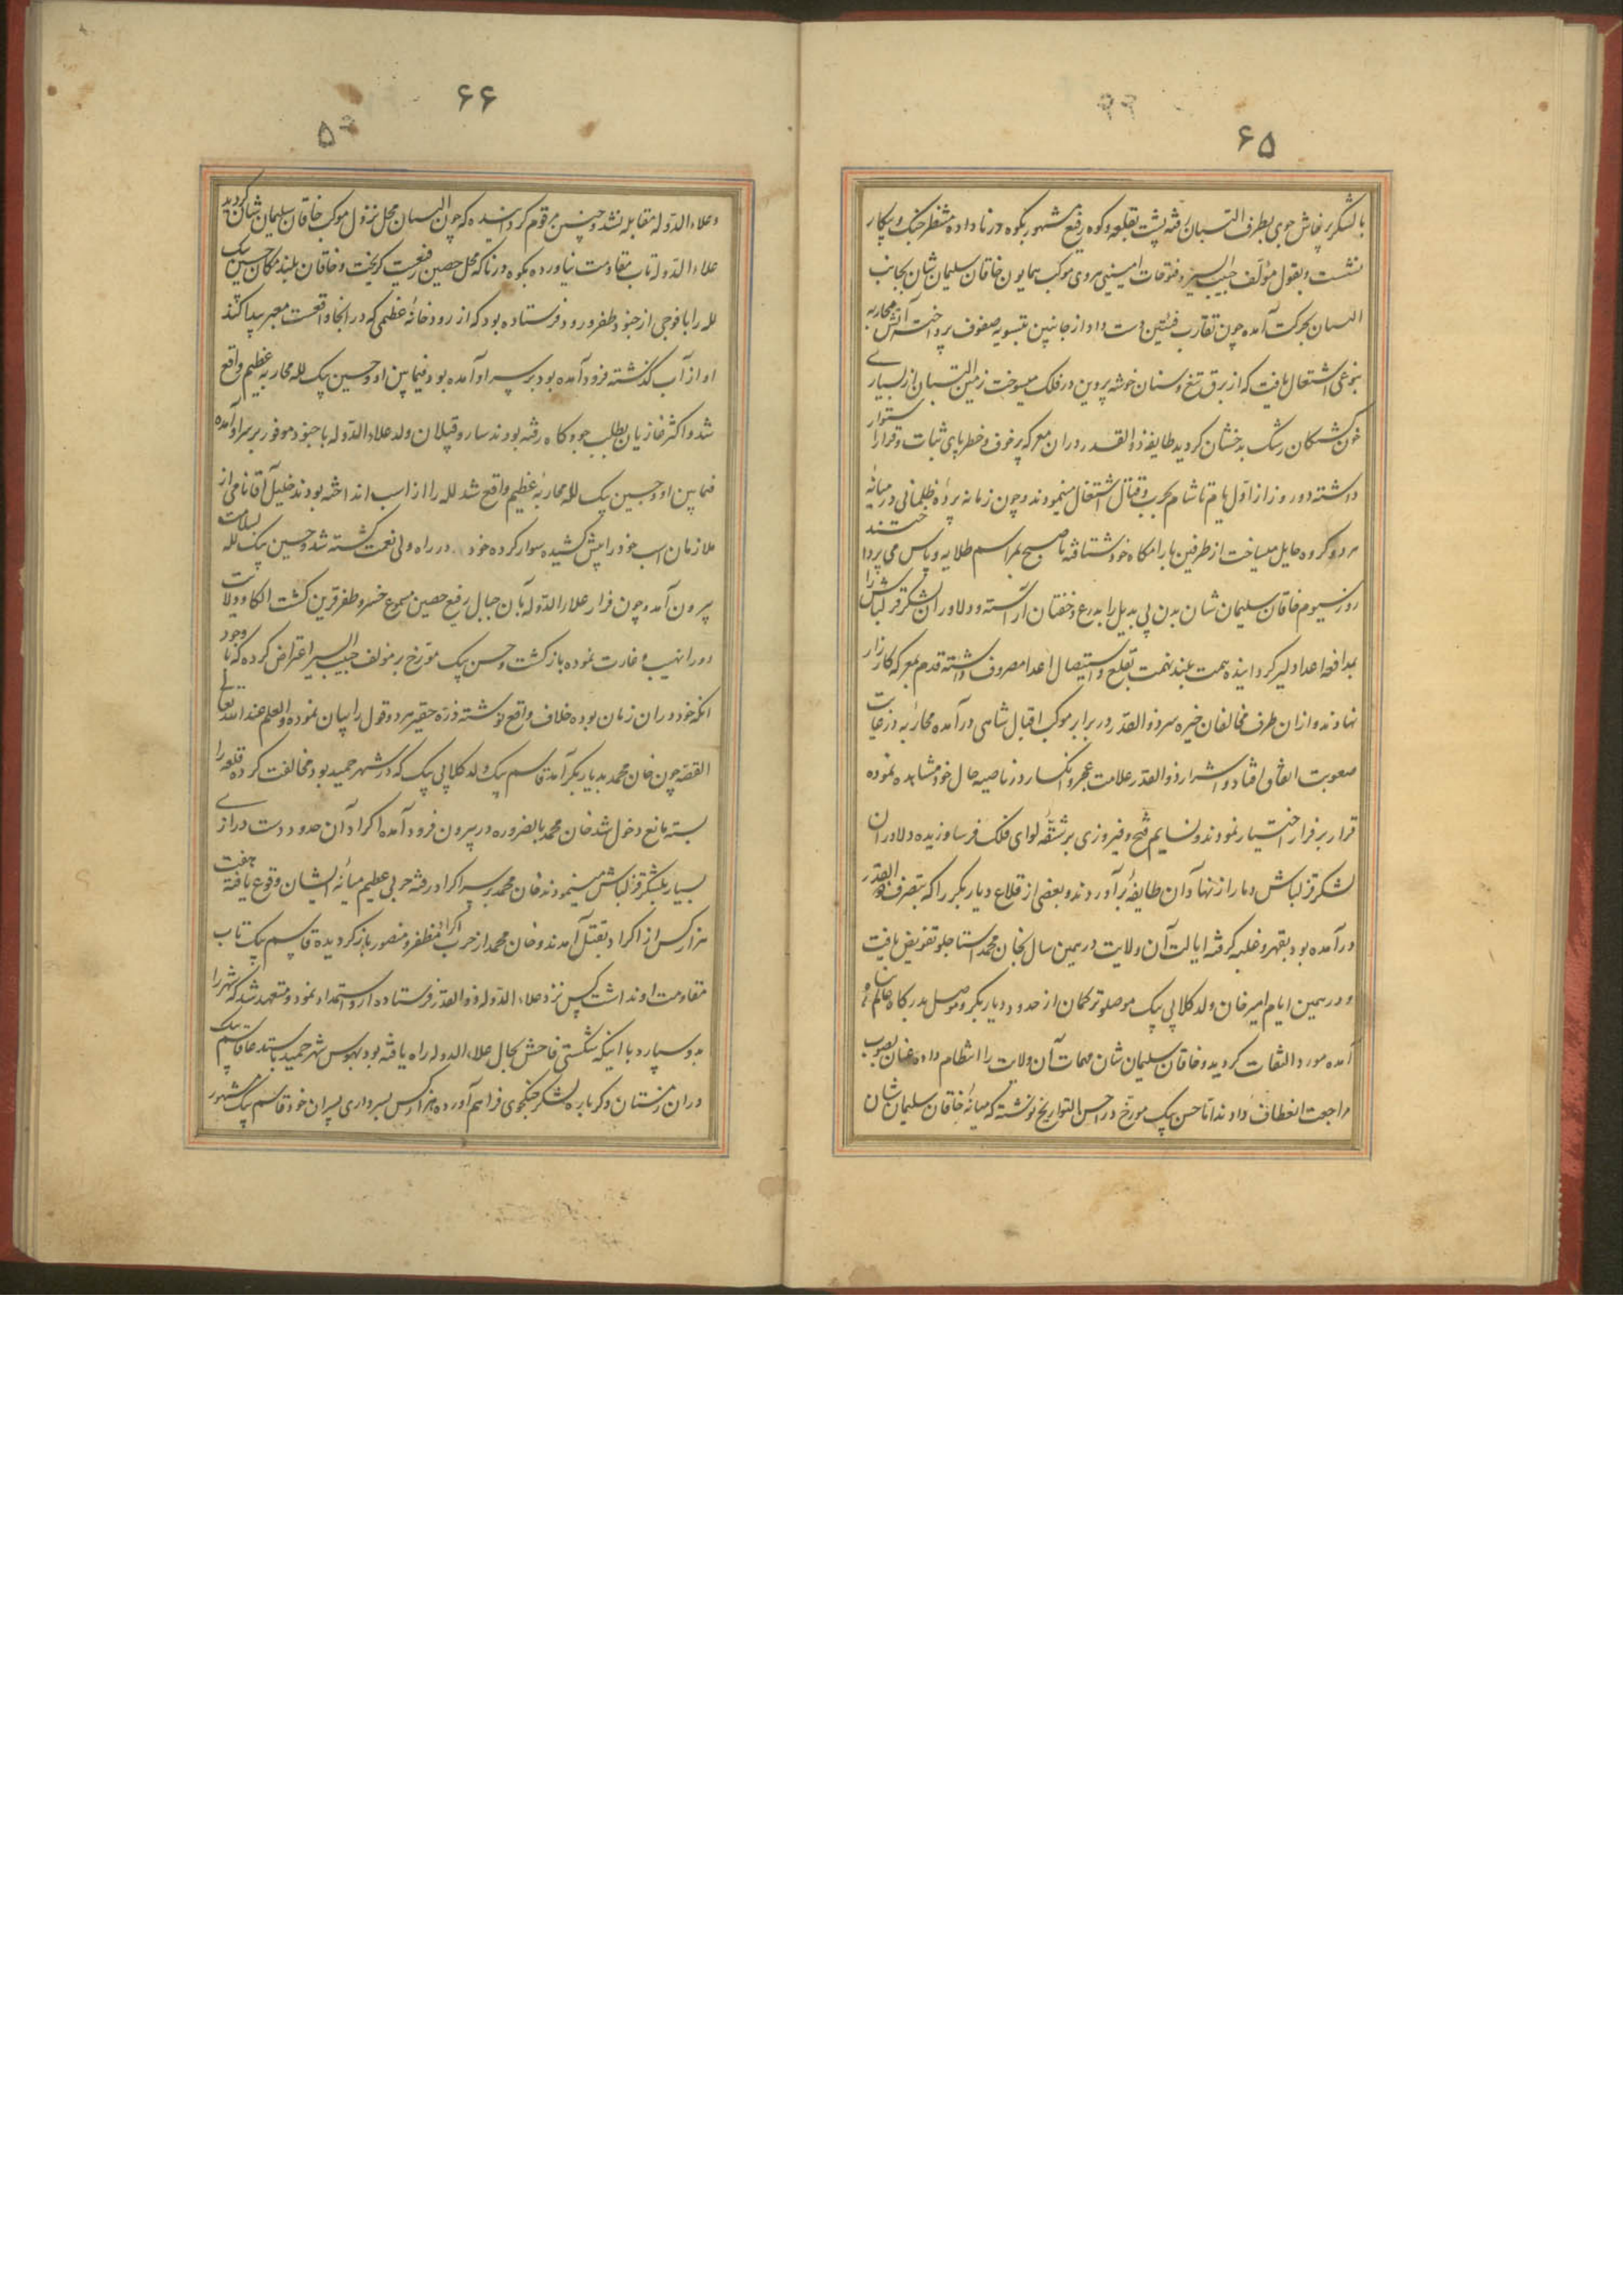 ۶۵
با لشکر پرخاش جوی بطرف البستان رفته پشت بقلعه و کوه رفیع مشهور بکوه درنا داده منتظر جنک و پیکار
نشست و بقول مؤلف حبیب السیر و فتوحات امینی هروی موکب همایون خاقان سلیمان شان بجانب
البستان بحرکت آمده چون تقارب فئتین دست داد از جانبین بتسویه صفوف پرداختند آتش محاربه
بنوعی اشتعال یافت که از برق تیغ و سنان خوشه پروین در فلک میسوخت زمین البستان از بسیاری
خون کشتکان رشک بدخشان کردید طایفه ذوالقدر در ان معرکه پر خوف و خطر پای ثبات و قرار استوار
داشته دو روز از اول بام تا شام بحرب و قتال اشتغال مینمودند و چون زمانه پرده ظلمانی در میانه
هر دو کروه حایل میساخت از طرفین بارامکاه خود شتافته تا صبح بمراسم طلایه و پاس می پرداختند
روز سیوم خاقان سلیمان شان بدن بی بدیل را بدرع و خفتان آراسته و دلاوران لشکر قزلباش را
بمدافعه اعدا دلیر کردانیده همت بلند نهمت بقلع و استیصال اعدا مصروف داشته قدم بمعرکه کارزار
نهادند و از ان طرف مخالفان خیره سر ذوالقدر در برابر موکب اقبال شاهی در آمده محاربه در غایت
صعوبت اتفاق افتاد و اشرار ذوالقدر علامت عجز و انکسار در ناصیه حال خود مشاهده نموده
قرار بر فرار اختیار نمودند و نسایم فتح و فیروزی بر شقه لوای فلک فرسا وزیده دلاوران
لشکر قزلباش دمار از نهاد آن طایفه برآوردند و بعضی از قلاع دیار بکر را که بتصرف ذوالقدر
درآمده بود بقهر و غلبه کرفته ایالت آن ولایت در همین سال بخان محمد استاجلو تفویض یافت
و در همین ایام امیر خان ولد کلابی بیک موصلو ترکمان از حدود دیار بکر و موصل بدرکاه عالم پناه
آمده مورد التفات کردید و خاقان سلیمان شان مهمات آن ولایت را انتظام داده عنان بصوب
مراجعت انعطاف دادند اما حسن بیک مورخ در احسن التواریخ نوشته که میانه خاقان سلیمان شان
۶۶
و علاء الدوله مقابله نشد و چنین مرقوم کردانیده که چون البستان محل نزول موکب خاقان سلیمان شان کردید
علاء الدوله تاب مقاومت نیاورده بکوه درنا که محل حصین رفیعست کریخت و خاقان بلند مکان حسین بیک
لله را با فوجی از جنود ظفر ورود فرستاده بود که از رودخانه عظیمی که در انجا واقعست معبر پیدا کند
او از آب کذشته فرود آمده بود بر سر او آمده بود فیما بین او و حسین بیک لله محاربه عظیم واقع
شد و اکثر غازیان بطلب جو و کاه رفته بودند سارو قپلان ولد علاء الدوله با جنود موفور بر سر او آمده
فیما بین او و حسین بیک لله محاربه عظیم واقع شد لله را از اسب انداخته بودند خلیل آقا نامی از
ملازمان اسب خود را پیش کشیده سوار کرده خود در راه ولی نعمت کشته شد و حسین بیک لله بسلامت
بیرون آمد و چون فرار علاء الدوله بآن جبال رفیع حصین مسموع خسرو ظفر قرین کشت الکا و ولایت
او را نهب و غارت نموده بازکشت و حسن بیک مورخ بر مؤلف حبیب السیر اعتراض کرده که با وجود
انکه خود در ان زمان بوده خلاف واقع نوشته ذره حقیر هر دو قول را بیان نموده والعلم عند الله تعالی
القصه چون خان محمد بدیار بکر آمد قاسم بیک ولد کلابی بیک که در شهر حمید بود مخالفت کرده قلعه را
بسته مانع دخول شد خان محمد بالضروره در بیرون فرود آمده اکراد آن حدود دست درازی
بسیار بلشکر قزلباش مینمودند خان محمد بر سر اکراد رفته حربی عظیم میانه ایشان وقوع یافته هفت
هزار کس از اکراد بقتل آمدند و خان محمد از حرب اکراد مظفر و منصور باز کردیده قاسم بیک تاب
مقاومت او نداشت کس نزد علاء الدوله ذوالقدر فرستاده از او استمداد نمود و متعهد شد که شهر را
بدو سپارد با اینکه شکستی فاحش بحال علاء الدوله راه یافته بود بهوس شهر حمید باستدعا قاسم بیک
در ان زمستان دکر باره لشکر جنکجوی فراهم آورده هزار کس بسرداری پسران خود قاسم بیک مشهور